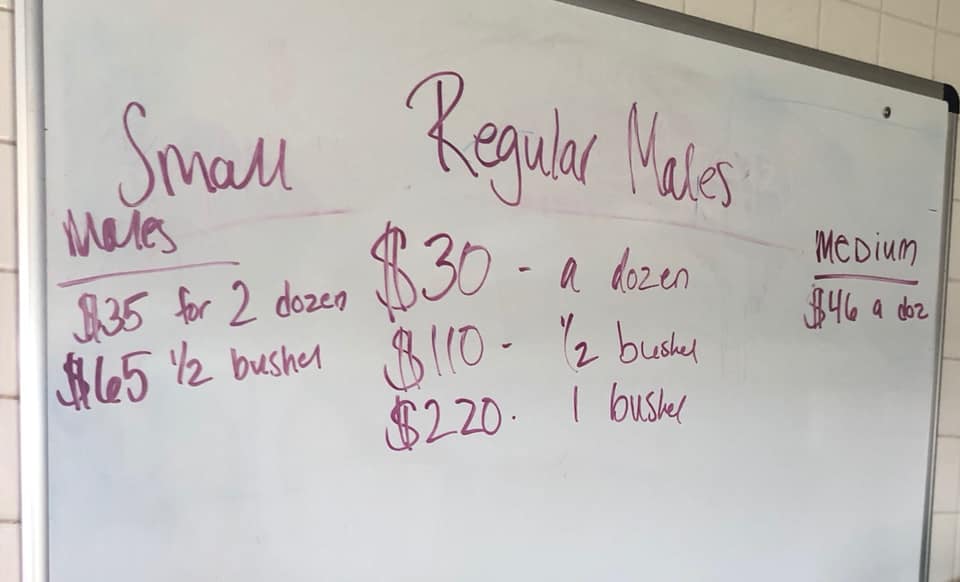 Small
Males
$35 for 2 dozen
$65 1/2 bushel
Regular Males
$30 - a dozen
$110 - 1/2 bushel
$220. 1 bushel
MEDIUM
$46 a doz